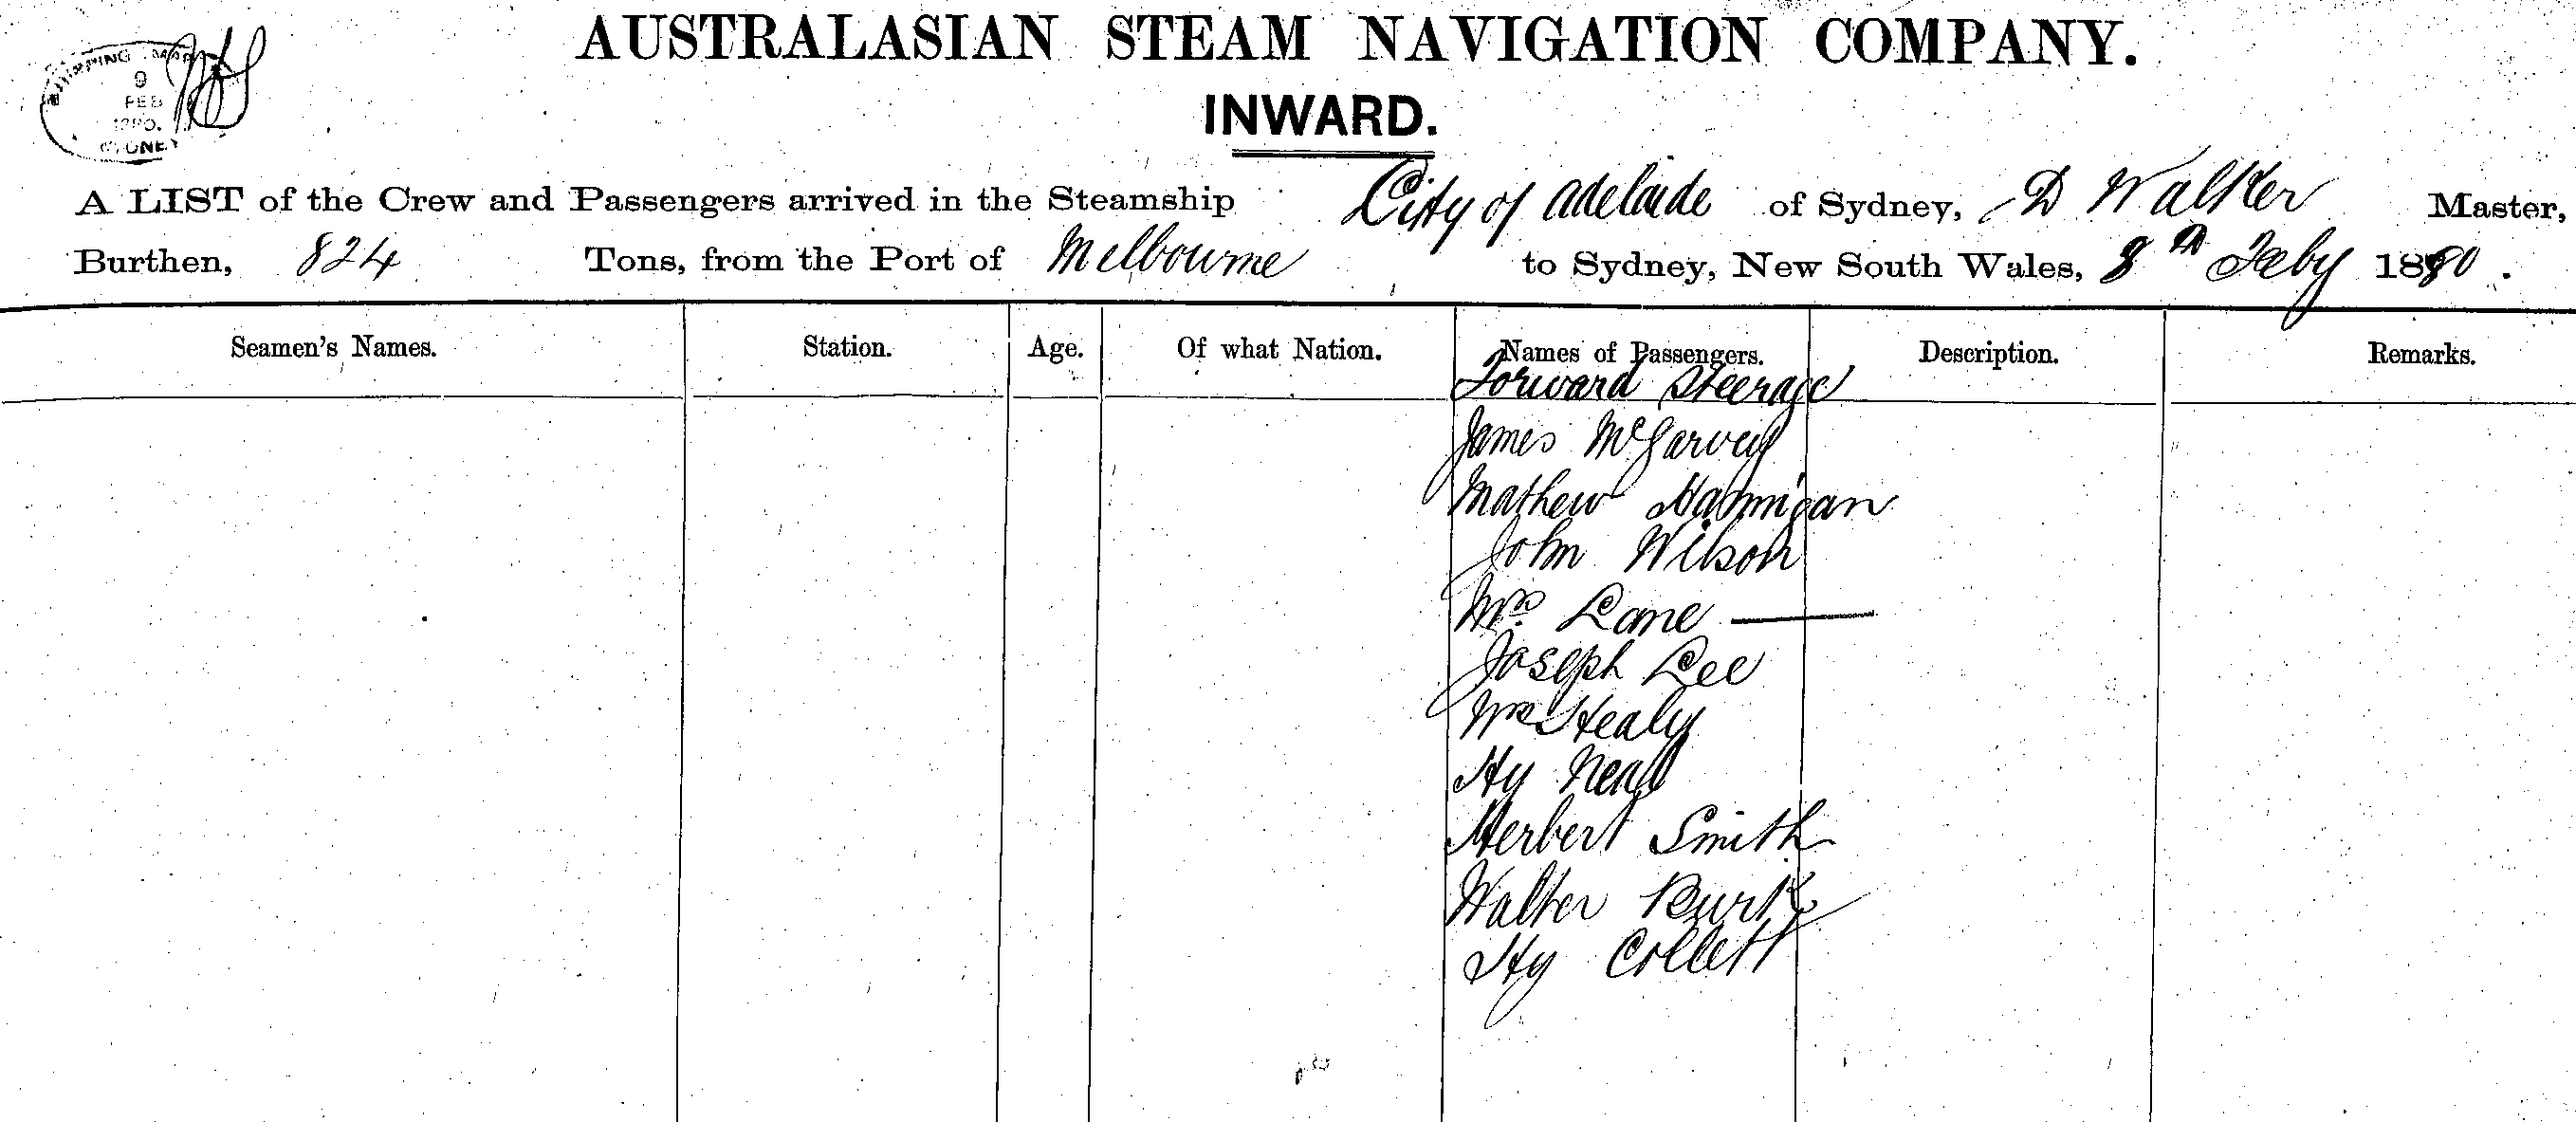 AUSTRALASIAN STEAM NAVIGATION COMPANY.
INWARD.
SHIPPING
9
FEB
1880.
SYDNEY
A LIST of the Crew and Passengers arrived in the Steamship City of Adelaide of Sydney, D Walker Master,
Burthen, 824 Tons, from the Port of Melbourne to Sydney, New South Wales, 8th Feby 1880.
Seamen's Names. Station. Age. Of what Nation. Names of Passengers. Description. Remarks.
Forward Steerage
James McGarvey
Mathew Hannigan
John Wilson
Mrs. Lane —
Joseph Lee
Healy
Hy Neall
Herbert Smith
Walter Burke
Hy Collett